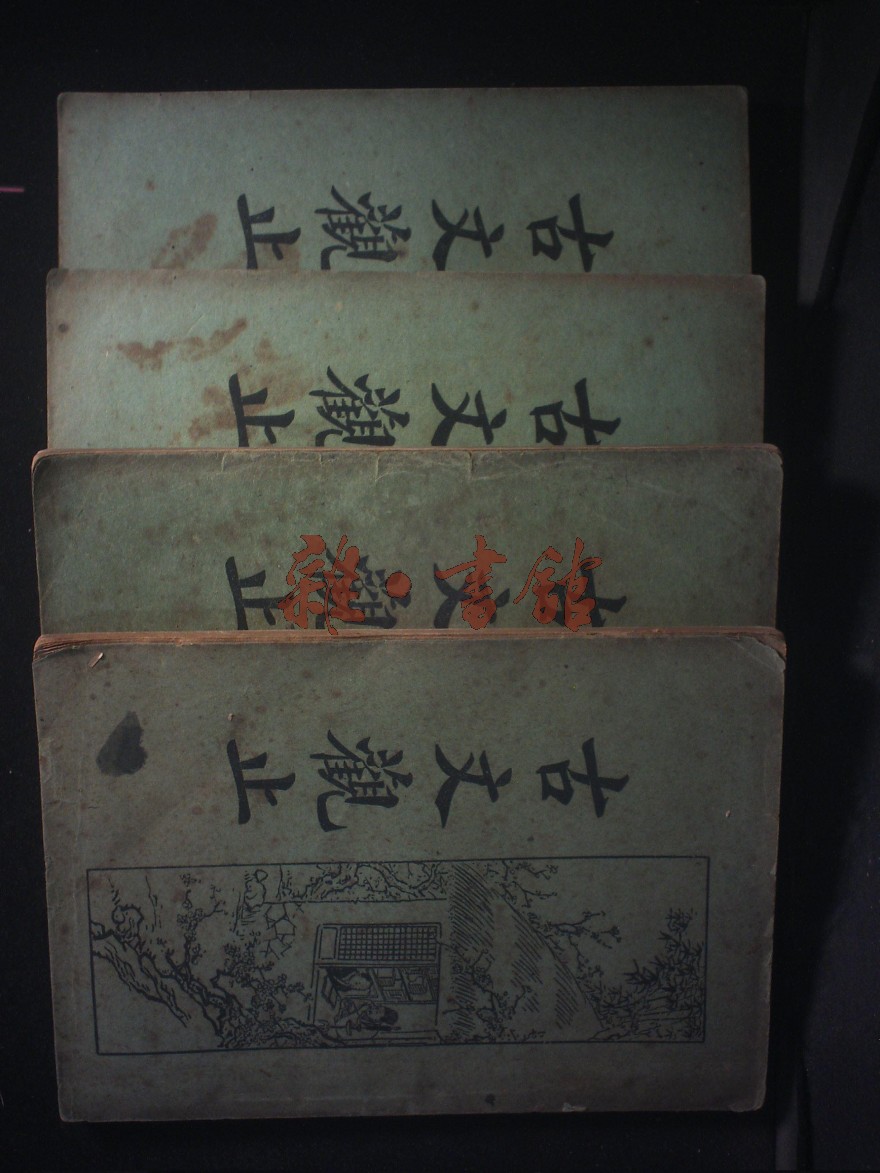 古文觀止
古文觀止
古文觀止
雜·書館
古文觀止